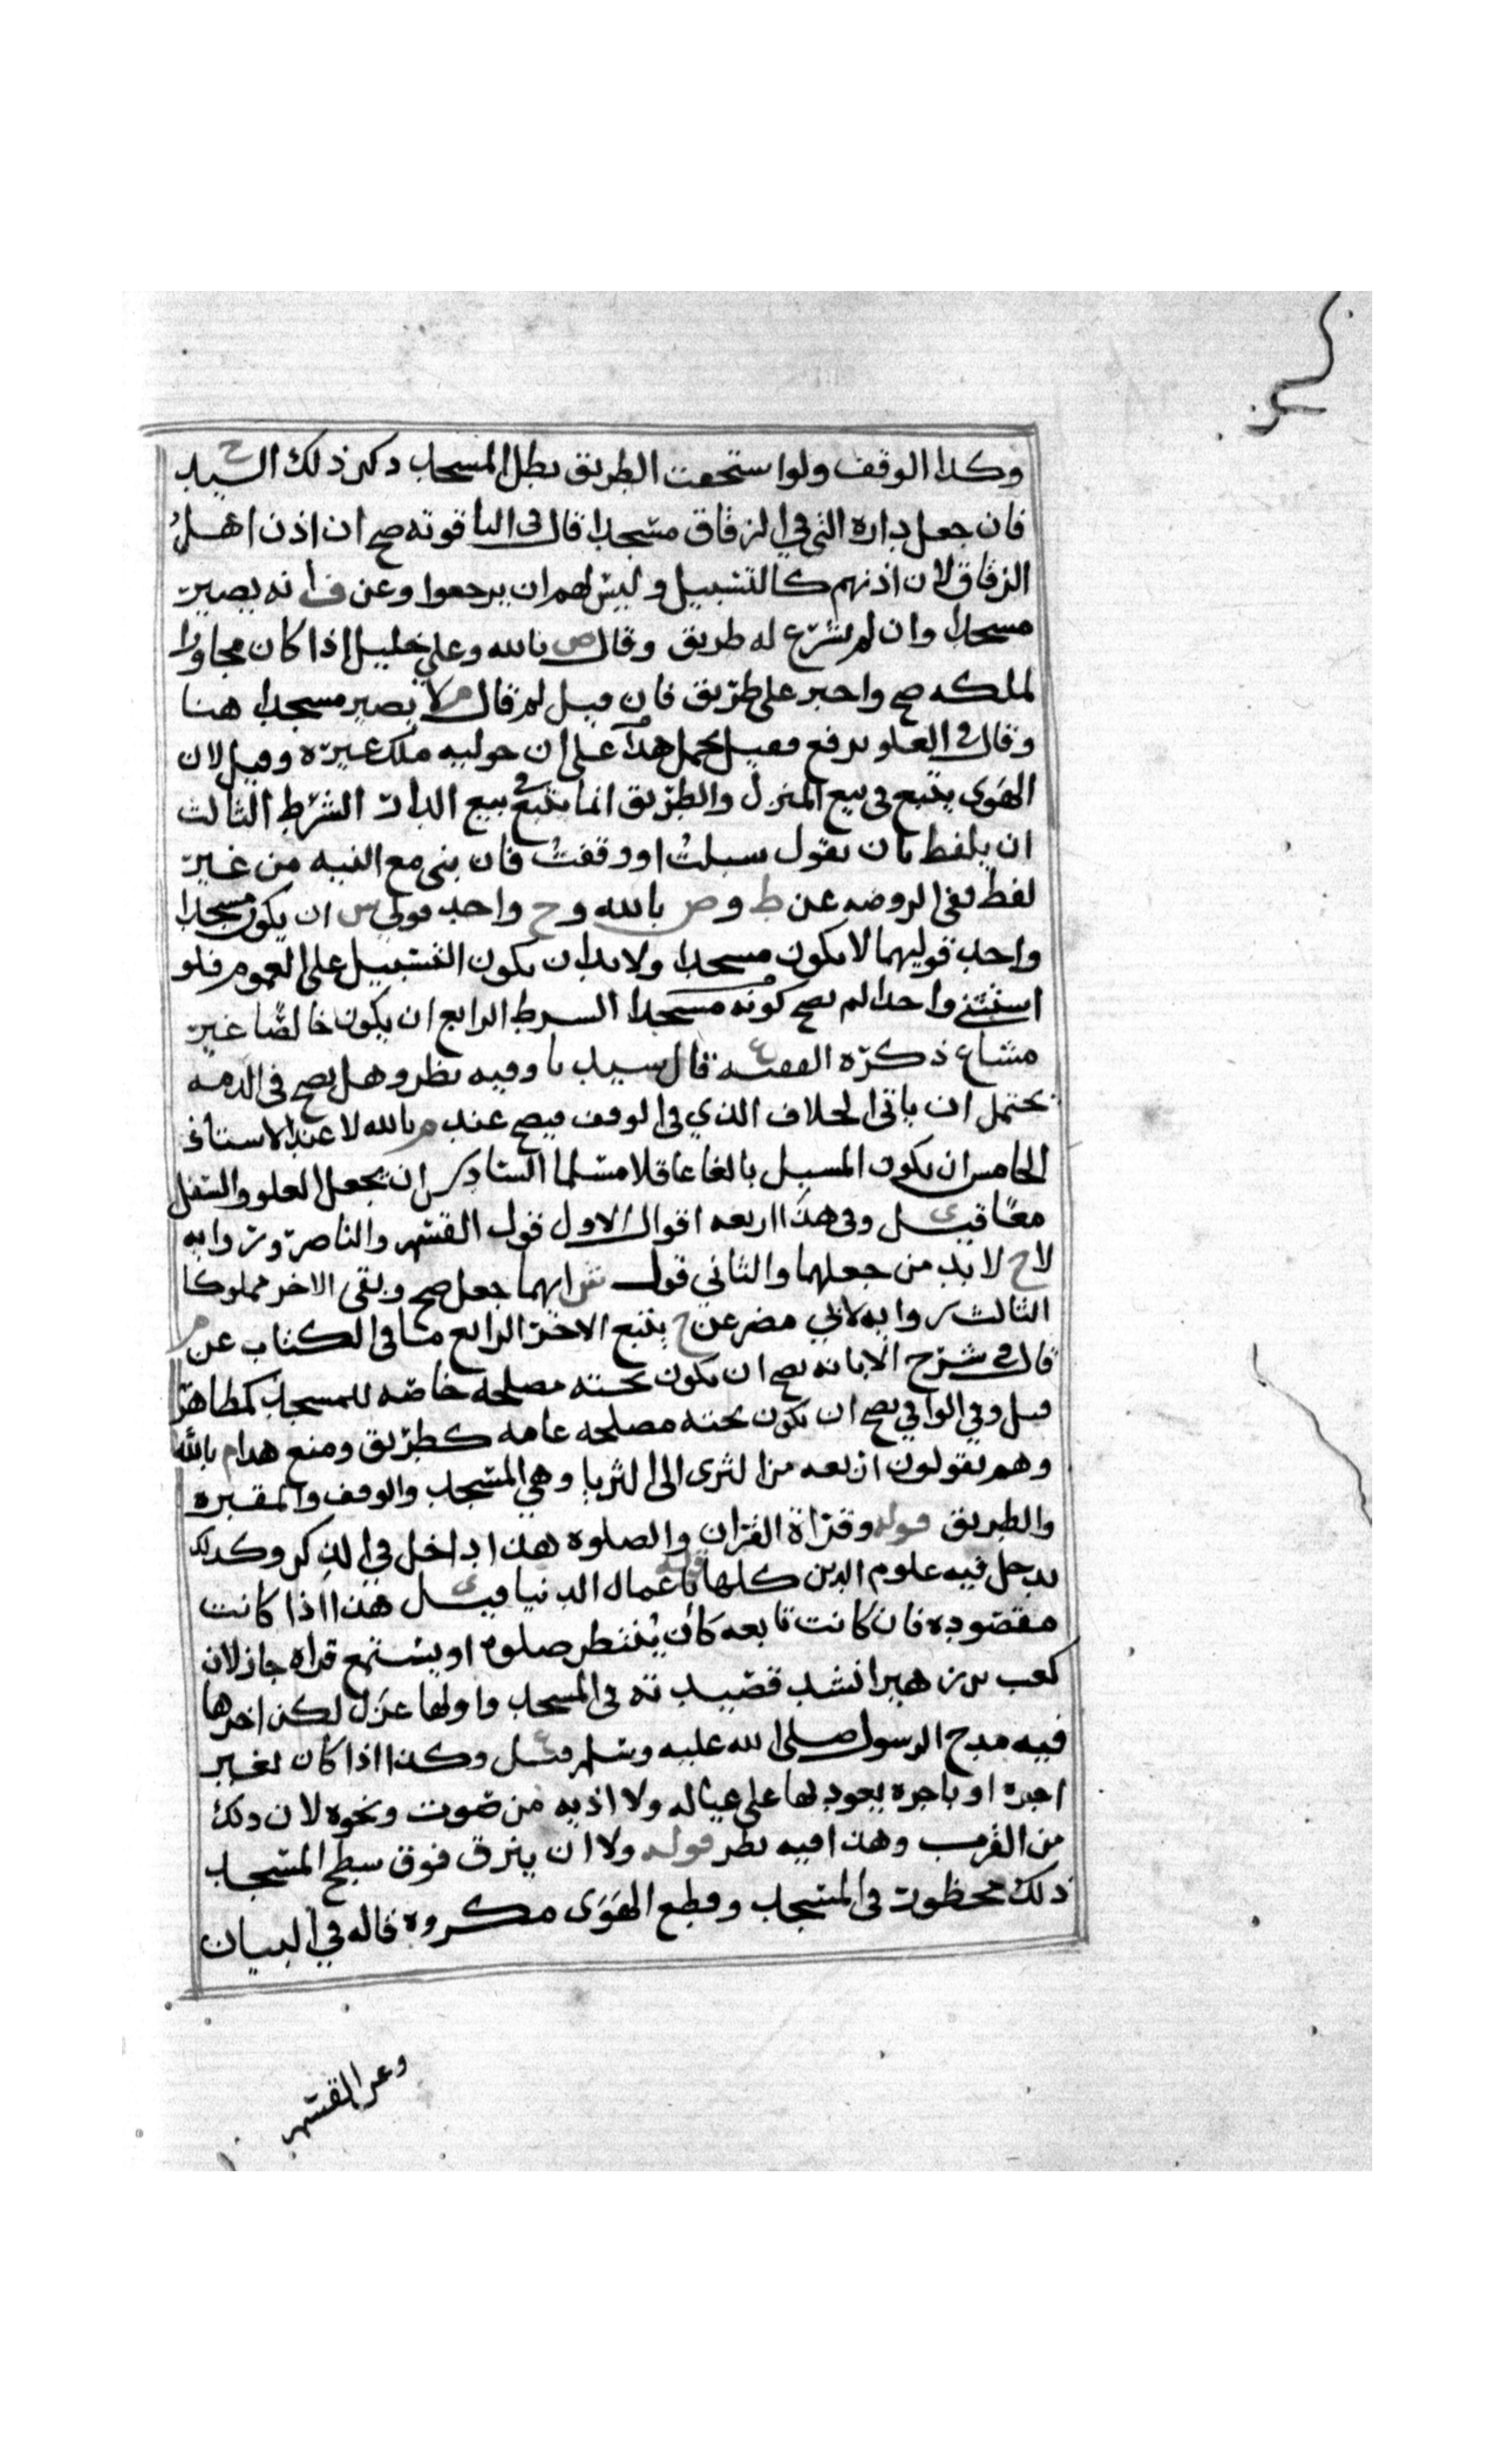 وكدا الوقف ولو استحقت الطريق بطل المسجد دكر ذلك السيد ح
فان جعل داره التي في الزقاق مسجدا قال في الياقوته صح ان اذن اهل
الزقاق لان اذنهم كالتسبيل وليس لهم ان يرجعوا وعن ف انه يصير
مسجدا وان لم يشرع له طريق وقال ص بالله وعلي خليل اذا كان مجاورا
لملكه صح واجبر على طريق فان قيل لم قال م لا يصير مسجدا هنا
وقال في العلو يرفع فقيل يحمل هدا على ان حوليه ملك غيره وقيل لان
الهوى يتبع في بيع المنزل والطريق انما يتبع في بيع الدار الشرط الثالث
ان يلفظ بان يقول سبلت او وقفت فان بنى مع النيه من غير
لفظ ففي الروضه عن ط و ص بالله و ح واحد قولي س ان يكون مسجدا
واحد قوليهما لا يكون مسجدا ولا بد ان يكون التسبيل على العموم فلو
استثنى واحدا لم يصح كونه مسجدا الشرط الرابع ان يكون خالصا غير
مشاع ذكره الفقيه ع قال سيدنا وفيه نظر وهل يصح في الذمه
يحتمل ان ياتي الخلاف الذي في الوقف فيصح عند م بالله لا عند الاستاذ
الخامس ان يكون المسبل بالغا عاقلا مسلما السادس ان يجعل العلو والسفل
معا قيل ي وفي هذا اربعه اقوال الاول قول القسم والناصر وروايه
لا ح لا بد من جعلهما والثاني قول ش ايهما جعل صح وبقي الاخر مملوكا
الثالث روايه لابي مضر عن ح يتبع الاخر الرابع ما في الكتاب عن م
قال في شرح الابانه يصح ان يكون تحته مصلحه خاصه للمسجد كمطاهر
قيل وفي الوافي يصح ان يكون تحته مصلحه عامه كطريق ومنع هدا م بالله
وهم يقولون اربعه من الثرى الى الثريا وهي المسجد والوقف والمقبره
والطريق قوله وقراة القران والصلوه هذا داخل في الذكر وكدلك
يدخل فيه علوم الدين كلها قوله باعمال الدنيا قيل ي هذا اذا كانت
مقصوده فان كانت تابعه كان ينتظر صلوه او يستمع قراه جاز لان
كعب بن زهير انشد قصيدته في المسجد واولها غزل لكن اخرها
فيه مدح الرسول صلى الله عليه وسلم قيل ع وكذا اذا كان لغير
اجره او باجره يعود بها على عياله ولا اذيه من صوت ونحوه لان دلك
من القرب وهذا فيه نظر قوله ولا ان يبزق فوق سطح المسجد
ذلك محظور في المسجد وقطع الهوى مكروه قاله في البيان
وعن القسم